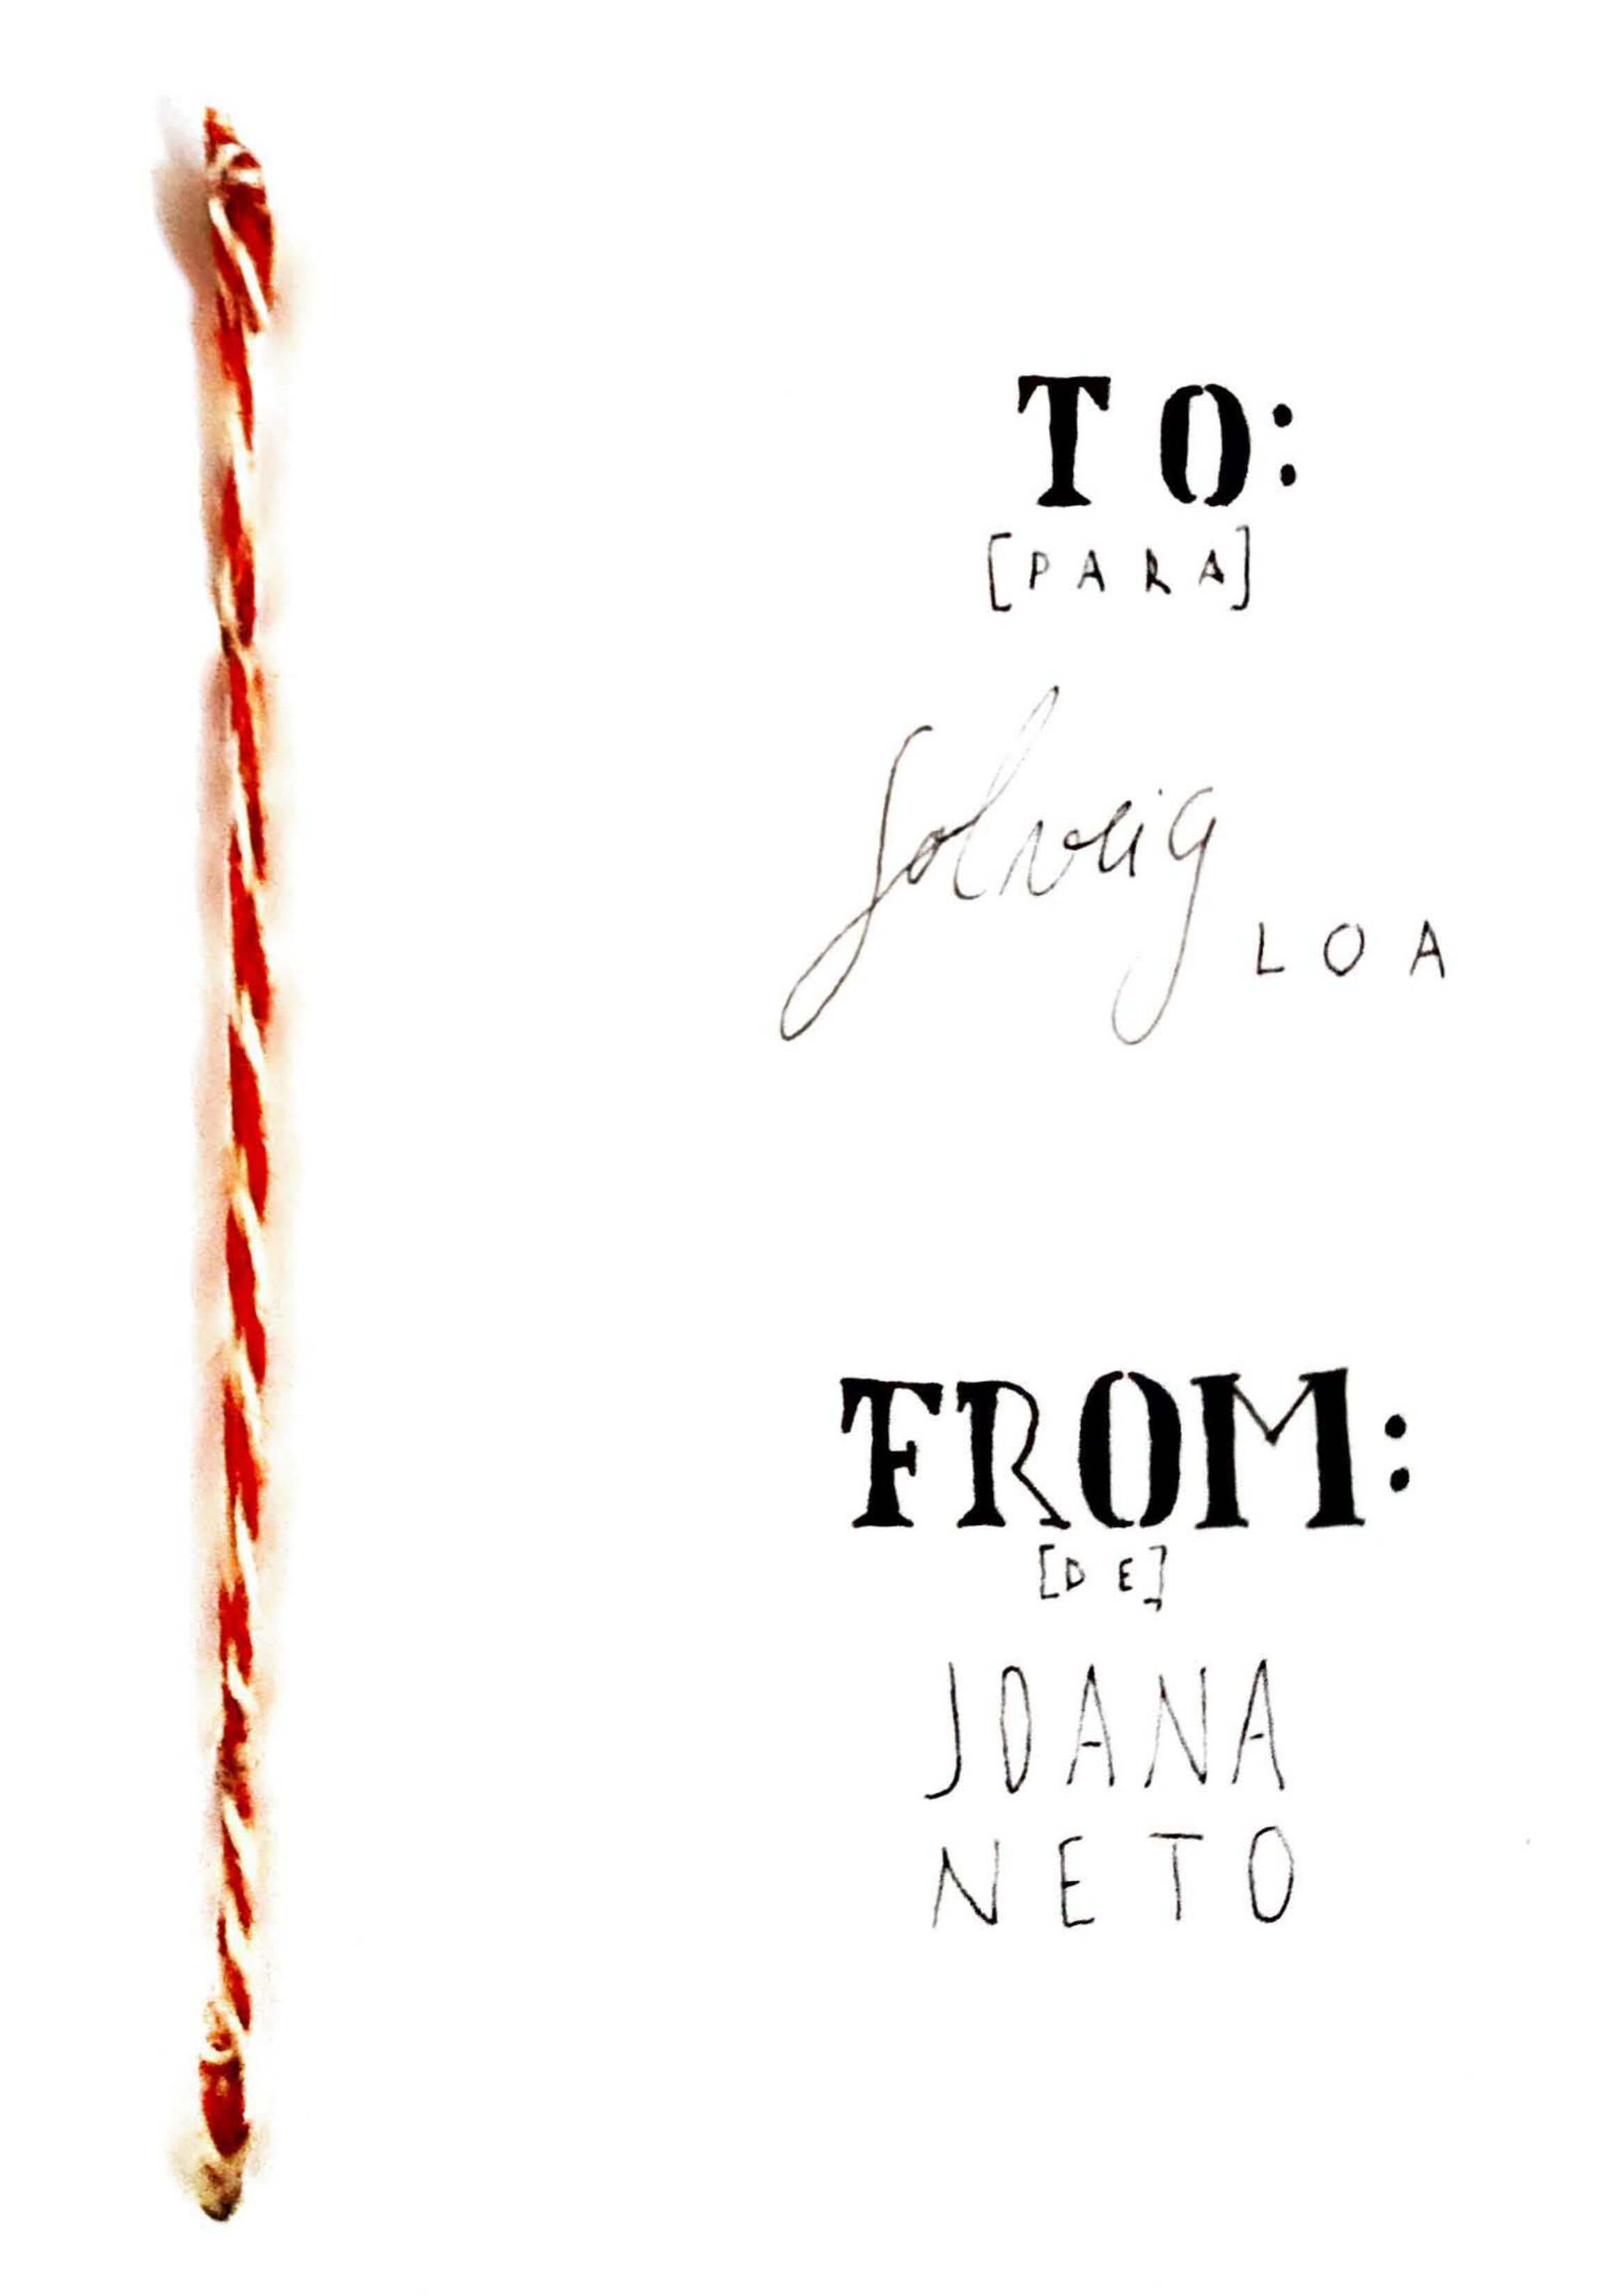 TO:
[PARA]
Solveig
LOA
FROM:
[DE]
JOANA
NETO